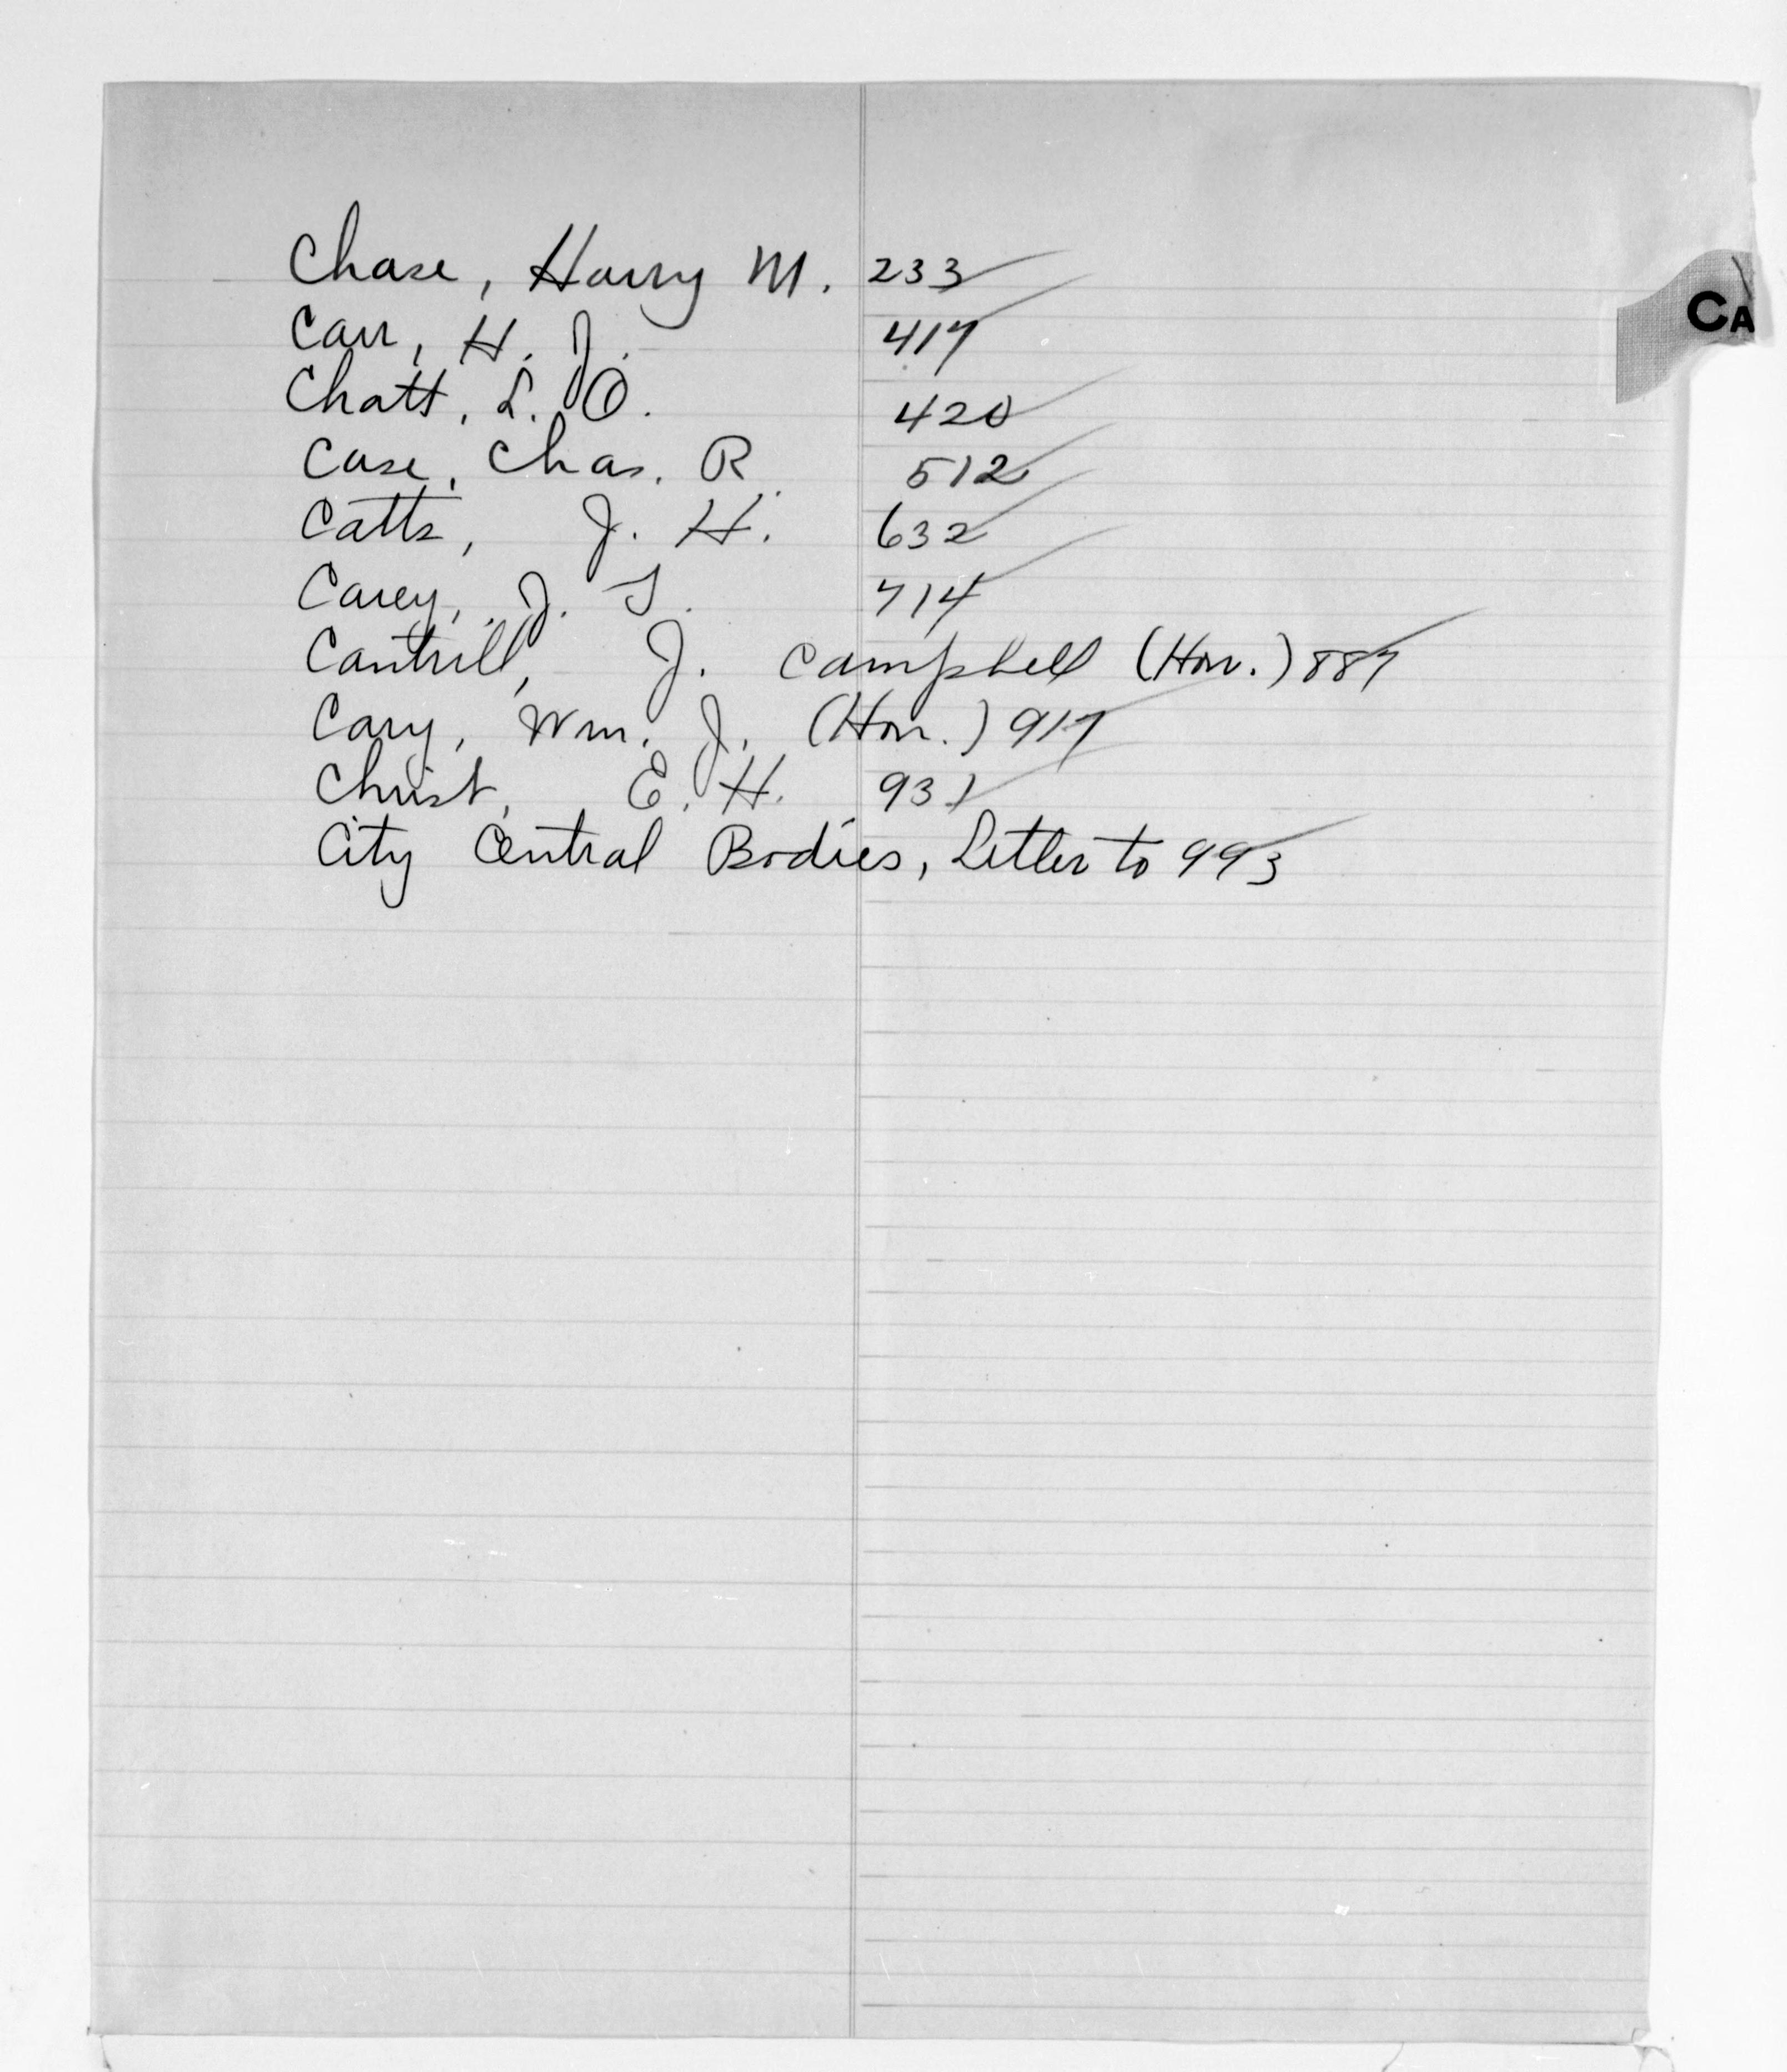 Chase, Harry M. 233
CA
Carr, H. J. 417
Chatt, L. O. 420
Case, Chas. R. 512
Catts, J. H. 632
Carey, J. T. 714
Cantrill, J. Campbell (Hon.) 887
Cary, Wm. J. (Hon.) 917
Christ, E. H. 931
City Central Bodies, Letter to 993